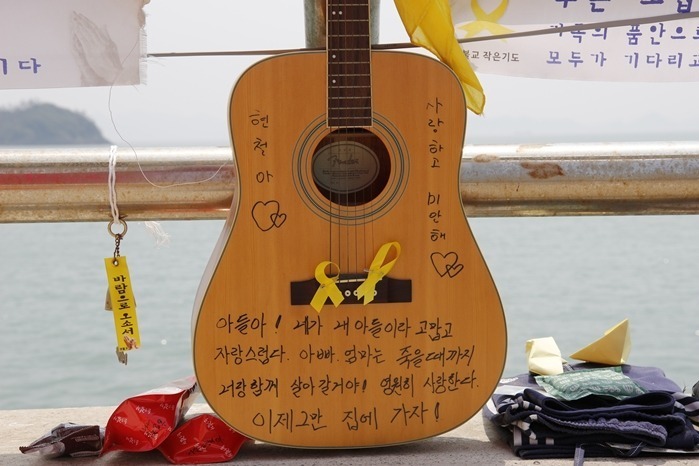 두 고맙
가족의 품안으로
모두가 기다리고
불교 작은기도
기다
현철아
사랑하고 미안해
Fender
바람으로 오소서
아들아! 네가 내 아들이라 고맙고
자랑스럽다. 아빠. 엄마는 죽을때까지
너랑함께 살아갈거야! 영원히 사랑한다.
이제그만 집에 가자!